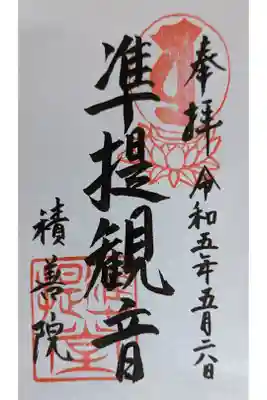 奉拝 令和五年五月六日
准提観音
積善院